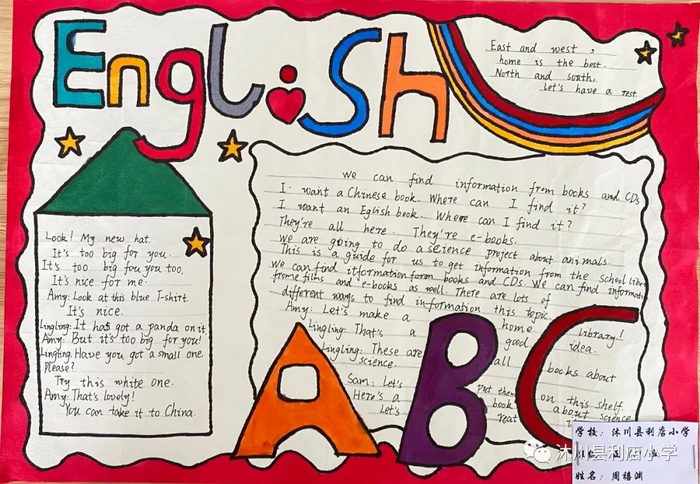 English
East and west,
home is the best.
North and south,
Let's have a rest.
Look! My new hat.
It's too big for you.
It's too big fou you too.
It's nice for me.
Amy: Look at this blue T-shirt.
It's nice.
Lingling: It has got a panda on it.
Amy: But it's too big for you!
Lingling: Have you got a small one
Please?
Try this white one.
Amy: That's lovely!
You can take it to China.
we can find information from books and CDs
I want a Chinese book. Where can I find it?
I want an Eglish book. Where can I find it?
They're all here. They're e-books.
we are going to do a science project about animals.
This is a guide for us to get information from the school libra
we can find itformation form books and CDs We can find informatio
frome films and e-books as well. There are lots of
different ways to find information this topic.
Amy: Let's make a home library!
Lingling: That's a good idea.
Lingling: These are all books about
science.
Sam: Let's put them on this shelf
Here's a book about science
Let's reat
ABC
学校：沐川县利店小学
姓名：周禧渊
沐川县利店小学